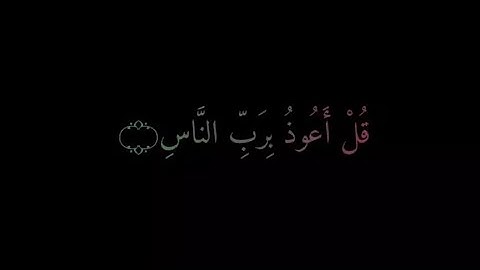 قُلْ أَعُوذُ بِرَبِّ النَّاسِ ۝